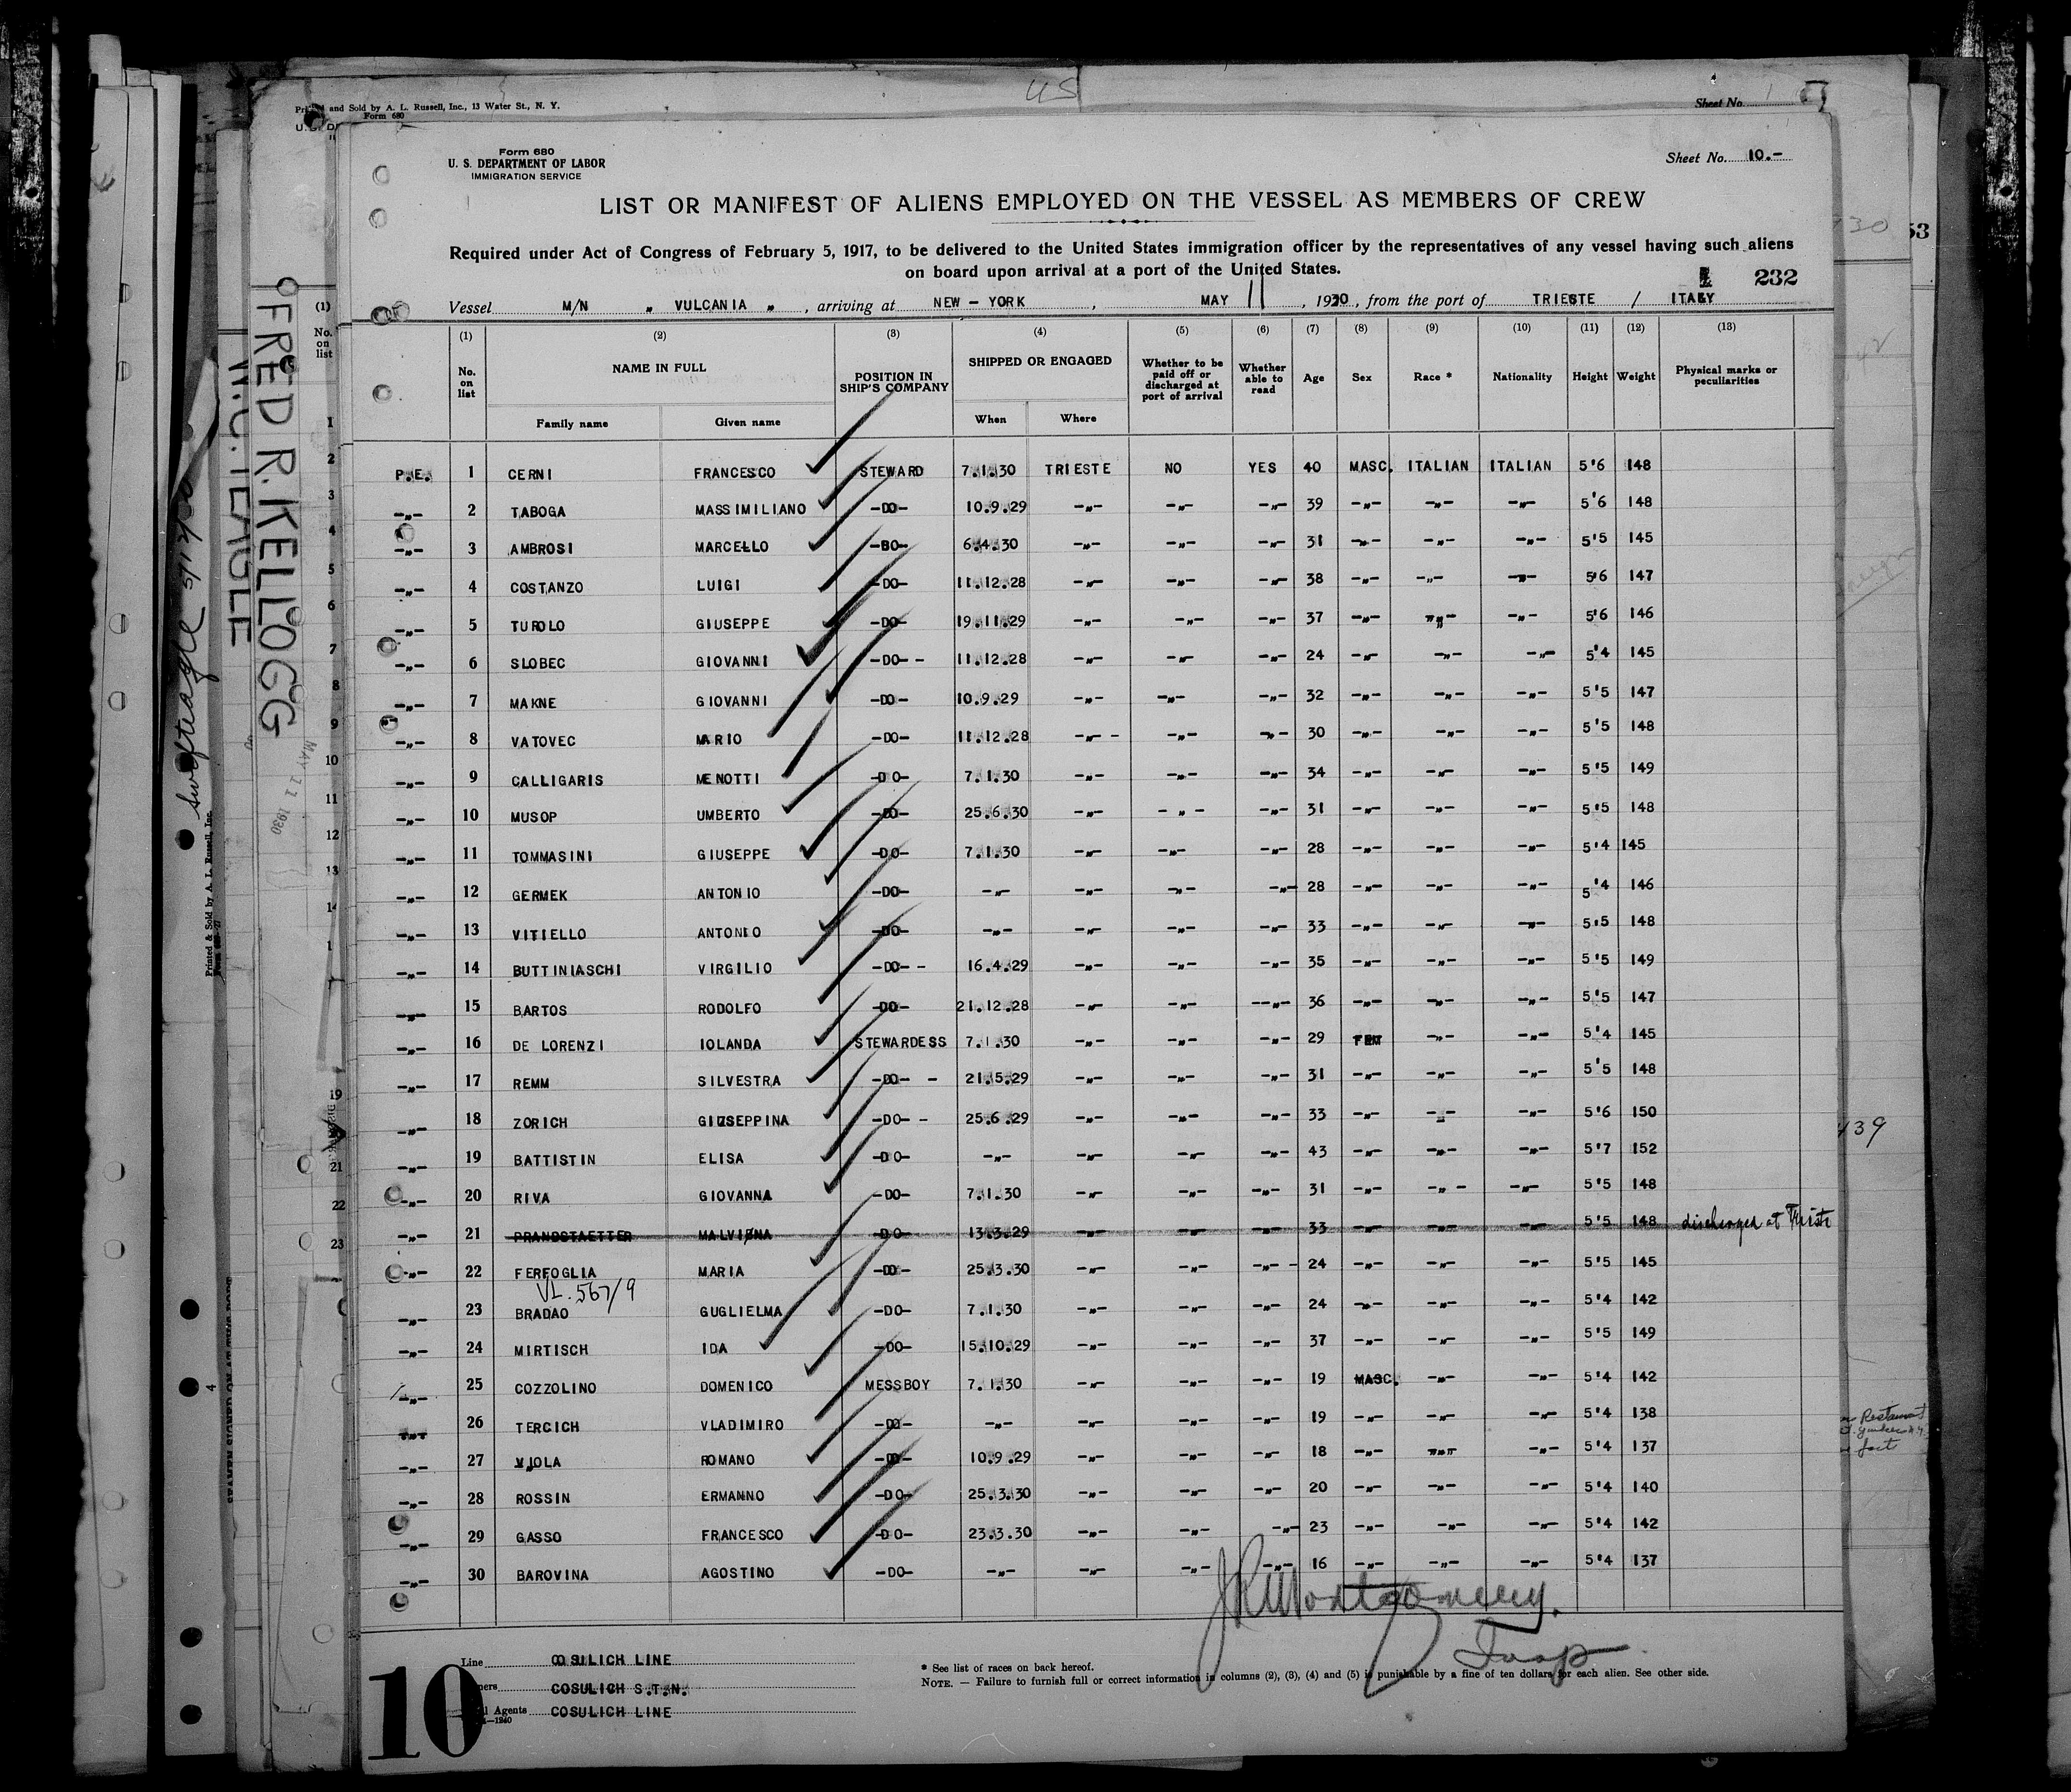 US
Printed and Sold by A. L. Russell, Inc., 13 Water St., N. Y.
Form 680
Sheet No.
Form 680
U. S. DEPARTMENT OF LABOR
IMMIGRATION SERVICE
Sheet No. 10.-
LIST OR MANIFEST OF ALIENS EMPLOYED ON THE VESSEL AS MEMBERS OF CREW
Required under Act of Congress of February 5, 1917, to be delivered to the United States immigration officer by the representatives of any vessel having such aliens
on board upon arrival at a port of the United States.
232
Vessel M/N „ VULCANIA „ , arriving at NEW - YORK , MAY 11 , 1930 , from the port of TRIESTE / ITALY
(1) (2) (3) (4) (5) (6) (7) (8) (9) (10) (11) (12) (13)
No. on list NAME IN FULL POSITION IN SHIP'S COMPANY SHIPPED OR ENGAGED Whether to be paid off or discharged at port of arrival Whether able to read Age Sex Race * Nationality Height Weight Physical marks or peculiarities
Family name Given name When Where
P.E. 1 CERNI FRANCESCO STEWARD 7.1.30 TRIESTE NO YES 40 MASC. ITALIAN ITALIAN 5'6 148
-„- 2 TABOGA MASSIMILIANO -DO- 10.9.29 -„- -„- -„- 39 -„- -„- -„- 5'6 148
-„- 3 AMBROSI MARCELLO -BO- 6.4.30 -„- -„- -„- 31 -„- -„- -„- 5'5 145
-„- 4 COSTANZO LUIGI -DO- 11.12.28 -„- -„- -„- 38 -„- -„- -„- 5'6 147
-„- 5 TUROLO GIUSEPPE -DO- 19.11.29 -„- -„- -„- 37 -„- -„- -„- 5'6 146
-„- 6 SLOBEC GIOVANNI -DO- - 11.12.28 -„- -„- -„- 24 -„- -„- -„- 5'4 145
-„- 7 MAKNE GIOVANNI -DO- 10.9.29 -„- -„- -„- 32 -„- -„- -„- 5'5 147
-„- 8 VATOVEC MARIO -DO- 11.12.28 -„- - -„- -„- 30 -„- -„- -„- 5'5 148
-„- 9 CALLIGARIS MENOTTI -DO- 7.1.30 -„- -„- -„- 34 -„- -„- -„- 5'5 149
-„- 10 MUSOP UMBERTO -DO- 25.6.30 -„- -„- -„- 31 -„- -„- -„- 5'5 148
-„- 11 TOMMASINI GIUSEPPE -DO- 7.1.30 -„- -„- -„- 28 -„- -„- -„- 5'4 145
-„- 12 GERMEK ANTONIO -DO- -„- -„- -„- -„- 28 -„- -„- -„- 5'4 146
-„- 13 VITIELLO ANTONIO -DO- -„- -„- -„- -„- 33 -„- -„- -„- 5'5 148
-„- 14 BUTTINIASCHI VIRGILIO -DO- - 16.4.29 -„- -„- -„- 35 -„- -„- -„- 5'5 149
-„- 15 BARTOS RODOLFO -DO- 21.12.28 -„- -„- --„- 36 -„- -„- -„- 5'5 147
-„- 16 DE LORENZI IOLANDA STEWARDESS 7.1.30 -„- -„- -„- 29 FEM -„- -„- 5'4 145
-„- 17 REMM SILVESTRA -DO- - 21.5.29 -„- -„- -„- 31 -„- -„- -„- 5'5 148
-„- 18 ZORICH GIUSEPPINA -DO- - 25.6.29 -„- -„- -„- 33 -„- -„- -„- 5'6 150
-„- 19 BATTISTIN ELISA -DO- -„- -„- -„- -„- 43 -„- -„- -„- 5'7 152
-„- 20 RIVA GIOVANNA -DO- 7.1.30 -„- -„- -„- 31 -„- -„- -„- 5'5 148
-„- 21 PRANDSTAETTER MALVINA -DO- 13.3.29 -„- -„- -„- 33 -„- -„- -„- 5'5 148 discharged at Trieste
-„- 22 FERFOGLIA MARIA -DO- 25.3.30 -„- -„- -„- - 24 -„- -„- -„- 5'5 145
VL. 567/9
-„- 23 BRADAO GUGLIELMA -DO- 7.1.30 -„- -„- -„- 24 -„- -„- -„- 5'4 142
-„- 24 MIRTISCH IDA -DO- 15.10.29 -„- -„- -„- 37 -„- -„- -„- 5'5 149
-„- 25 COZZOLINO DOMENICO MESSBOY 7.1.30 -„- -„- -„- 19 MASC. -„- -„- 5'4 142
-„- 26 TERCICH VLADIMIRO -DO- -„- -„- -„- -„- 19 -„- -„- -„- 5'4 138
-„- 27 VIOLA ROMANO -DO- 10.9.29 -„- -„- -„- 18 -„- -„- -„- 5'4 137
-„- 28 ROSSIN ERMANNO -DO- 25.3.30 -„- -„- -„- 20 -„- -„- -„- 5'4 140
-„- 29 GASSO FRANCESCO -DO- 23.3.30 -„- -„- -„- 23 -„- -„- -„- 5'4 142
-„- 30 BAROVINA AGOSTINO -DO- -„- -„- -„- -„- 16 -„- -„- -„- 5'4 137
JR Montgomery.
Insp
Line COSULICH LINE
COSULICH S.T.N.
Agents COSULICH LINE
10
* See list of races on back hereof.
NOTE. — Failure to furnish full or correct information in columns (2), (3), (4) and (5) is punishable by a fine of ten dollars for each alien. See other side.
FRED R. KELLOGG
W.C. TEAGLE
MAY 11 1930
Swifteagle
Printed & Sold by A. L. Russell, Inc.
(1)
No. on list
1
2
3
4
5
6
7
8
9
10
11
12
13
14
19
21
22
23
4
53
30
439
Restaurant